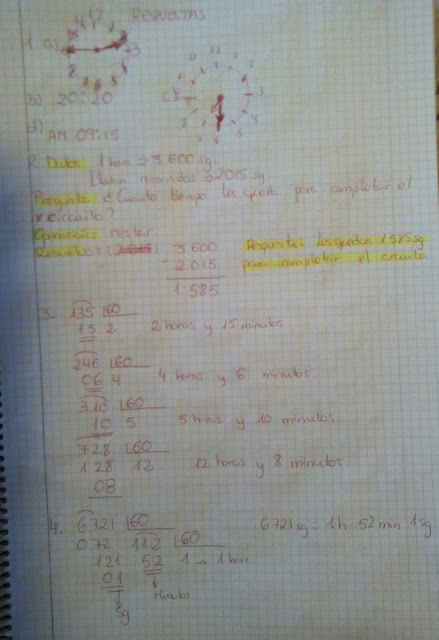 RESPUESTAS
1. a)
12
9 3
8 4
7 6 5
b) 20:20
c)
12
11 1
10 2
9 3
8 4
7 6 5
d) AM 09:15
2. Datos: 1 hora → 3600 sg.
Llevan recorridos → 2015 sg
Pregunta: ¿Cuánto tiempo les queda para completar el
circuito?
Operación: restar
Resuelto: (2015) 3600
- 2015
1.585
Respuesta: Les quedan 1585 sg
para completar el circuito
3. 135 60
15 2 2 horas y 15 minutos
246 60
06 4 4 horas y 6 minutos.
310 60
10 5 5 horas y 10 minutos.
728 60
128 12 12 horas y 8 minutos.
08
4. 6721 60 6721 sg = 1h 52 min 1 sg
072 112 60
121 52 1 → 1 hora
01 Minutos
sg